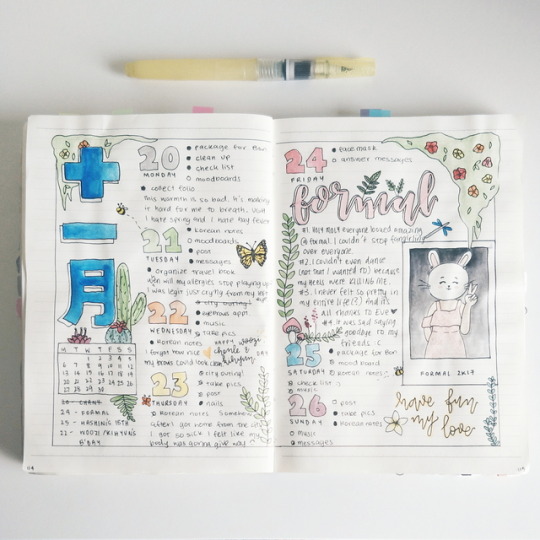 十
一
月
M T W T F S S
1 2 3 4 5
6 7 8 9 10 11 12
13 14 15 16 17 18 19
20 21 22 23 24 25 26
27 28 29 30
24 - FORMAL
25 - HASHINI'S 18TH
22 - WOOZI / KIHYUN'S
B'DAY
20
MONDAY
package for Bon
clean up
check list
moodboards
collect folio
this warmth is so bad. It's making
it hard for me to breath. Ugh
I hate spring and I hate hay fever
21
TUESDAY
Korean notes
moodboards
post
messages
organise travel book
why will my allergies stop playing up
I was legit just crying from my
22
WEDNESDAY
city outing!
eyebrows appt
music
take pics
Korean notes
I forgot how nice
my brows could look
HAPPY woozi
kihyun
DAY
23
THURSDAY
city outing!
take pics
post
nails
Korean notes
I got so sick I felt like my
body was gonna give way
24
FRIDAY
face mask
answer messages
formal
#1. Holy moly everyone looked amazing
@ formal. I couldn't stop
over everyone.
#2. I couldn't even dance
(not that I wanted to) because
my heels were KILLING ME.
#3. I never felt so pretty in
my entire life (?) And it's
all thanks to Eve
#4. it was sad saying
goodbye to my
friends :(
25
SATURDAY
package for Bon
mood board
Korean notes
check list
music
26
SUNDAY
post
take pics
Korean notes
music
messages
FORMAL 2K17
have fun
my love